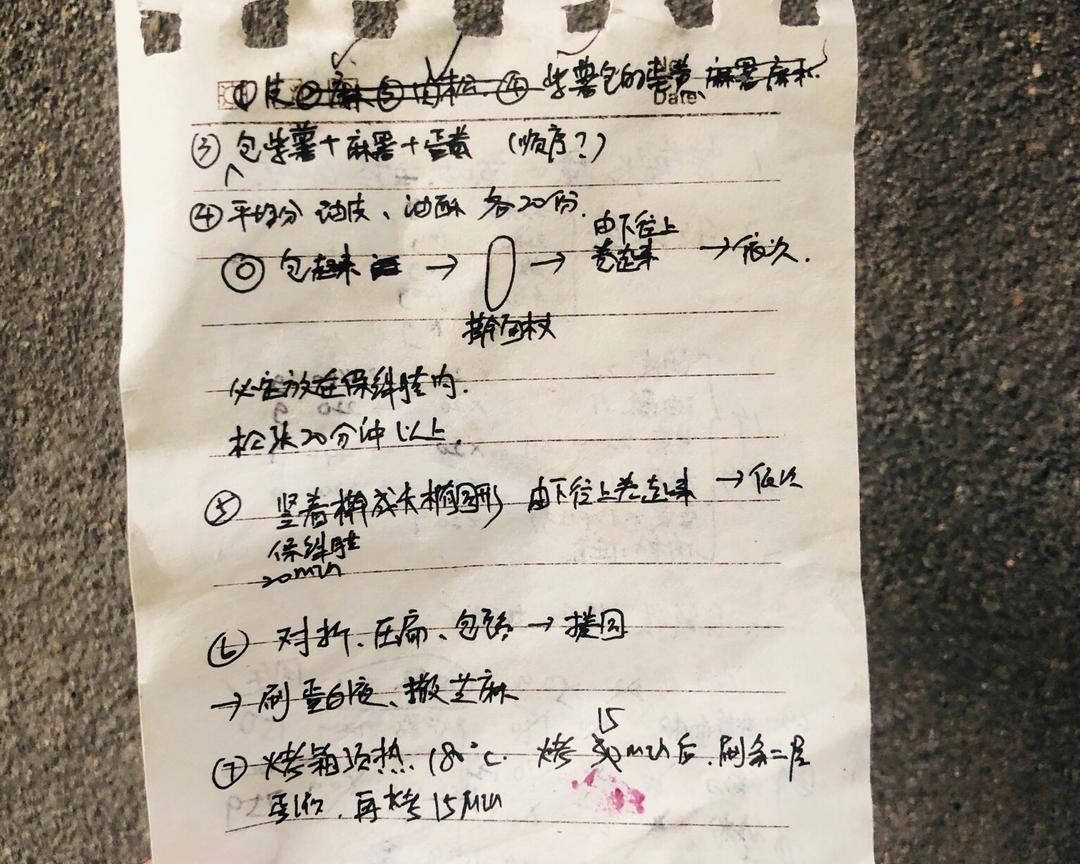 ①皮 ② 麻 ③ 肉松 ④ 紫薯包的蛋黄、麻薯 麻松
Date
③ 包紫薯+麻薯+蛋黄 (顺序?)
④ 平均分 油皮、油酥 各20份.
包起来 → → 由下往上卷起来 → 依次.
擀面杖
必定放在保鲜膜内.
松弛20分钟以上.
⑤ 竖着擀成长椭圆形 由下往上卷起来 → 依次
保鲜膜
20min
⑥ 对折、压扁、包馅 → 搓圆
→ 刷蛋白液、撒芝麻
⑦ 烤箱预热 180°c. 烤 15 min后. 刷第二层
蛋液. 再烤15Min